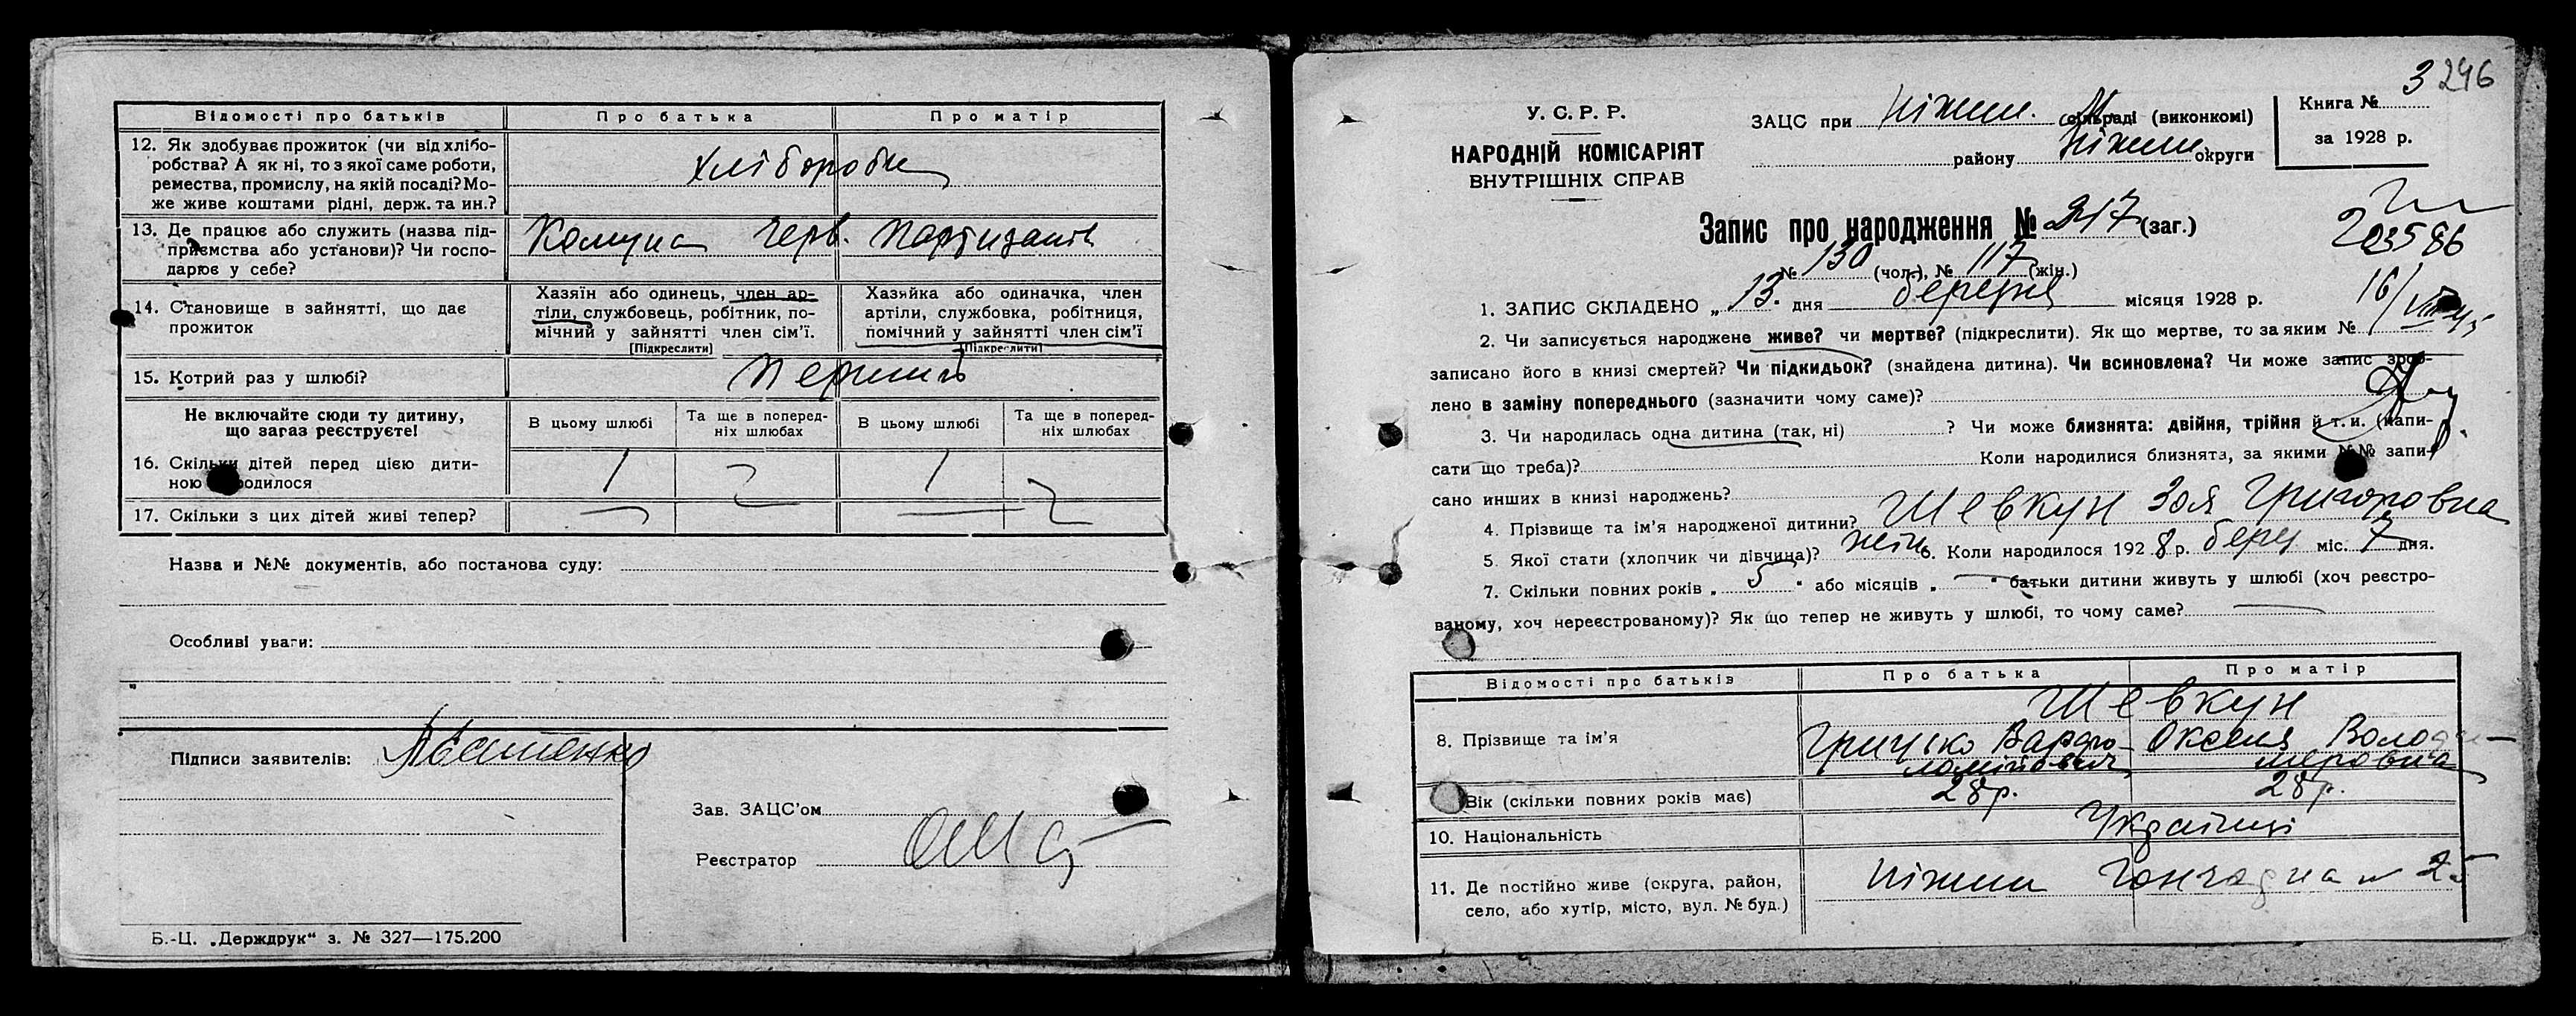 Відомості про батьків
Про батька
Про матір
12. Як здобуває прожиток (чи від хлібо-
робства? А як ні, то з якої саме роботи,
ремества, промислу, на якій посаді? Мо-
же живе коштами рідні, держ. та ин.?
хлібороби
13. Де працює або служить (назва під-
приємства або установи)? Чи госпо-
дарює у себе?
Комуна Черв. Партизанів
14. Становище в зайнятті, що дає
прожиток
Хазяїн або одинець, член ар-
тіли, службовець, робітник, по-
мічний у зайнятті член сім'ї.
[Підкреслити]
Хазяйка або одиначка, член
артіли, службовка, робітниця,
помічний у зайнятті член сім'ї
[Підкреслити]
15. Котрий раз у шлюбі?
Перший
Не включайте сюди ту дитину,
що загаз реєструєте!
В цьому шлюбі
Та ще в поперед-
ніх шлюбах
В цьому шлюбі
Та ще в поперед-
ніх шлюбах
16. Скільки дітей перед цією дити-
ною родилося
1 1
17. Скільки з цих дітей живі тепер?
Назва и №№ документів, або постанова суду:
Особливі уваги:
Підписи заявителів:
Зав. ЗАЦС'ом
Реєстратор
Б.-Ц. „Держдрук“ з. № 327—175.200
3 246
У. С. Р. Р.
НАРОДНІЙ КОМІСАРІЯТ
ВНУТРІШНІХ СПРАВ
ЗАЦС при Ніжин. М. сільраді (виконкомі)
району Ніжин округи
Книга №
за 1928 р.
Запис про народження № 247 (заг.)
№ 130 (чол.), № 117 (жін.)
203586
16/VIII 45
1. ЗАПИС СКЛАДЕНО „ 13. дня березня місяця 1928 р.
2. Чи записується народжене живе? чи мертве? (підкреслити). Як що мертве, то за яким №
записано його в книзі смертей? Чи підкидьок? (знайдена дитина). Чи всиновлена? Чи може запис зроб-
лено в заміну попереднього (зазначити чому саме)?
3. Чи народилась одна дитина (так, ні) ? Чи може близнята: двійня, трійня й т. и. (напи-
сати що треба)? Коли народилися близнята, за якими №№ запи-
сано инших в книзі народжень?
4. Прізвище та ім'я народженої дитини? Шевкун Зоя Григоровна
5. Якої стати (хлопчик чи дівчина)? жін 6. Коли народилося 1928 р. берез міс. 7 дня.
7. Скільки повних років „ 5 “ або місяців „ — “ батьки дитини живуть у шлюбі (хоч реєстро-
ваному, хоч нереєстрованому)? Як що тепер не живуть у шлюбі, то чому саме? —
Відомості про батьків
Про батька
Про матір
8. Прізвище та ім'я
Шевкун
Грицько Варфо-
ломійович
Оксеня Володи-
меровна
Вік (скільки повних років має)
28 р. 28 р.
10. Національність
Українці
11. Де постійно живе (округа, район,
село, або хутір, місто, вул. № буд.)
Ніжин Гончарна № 25